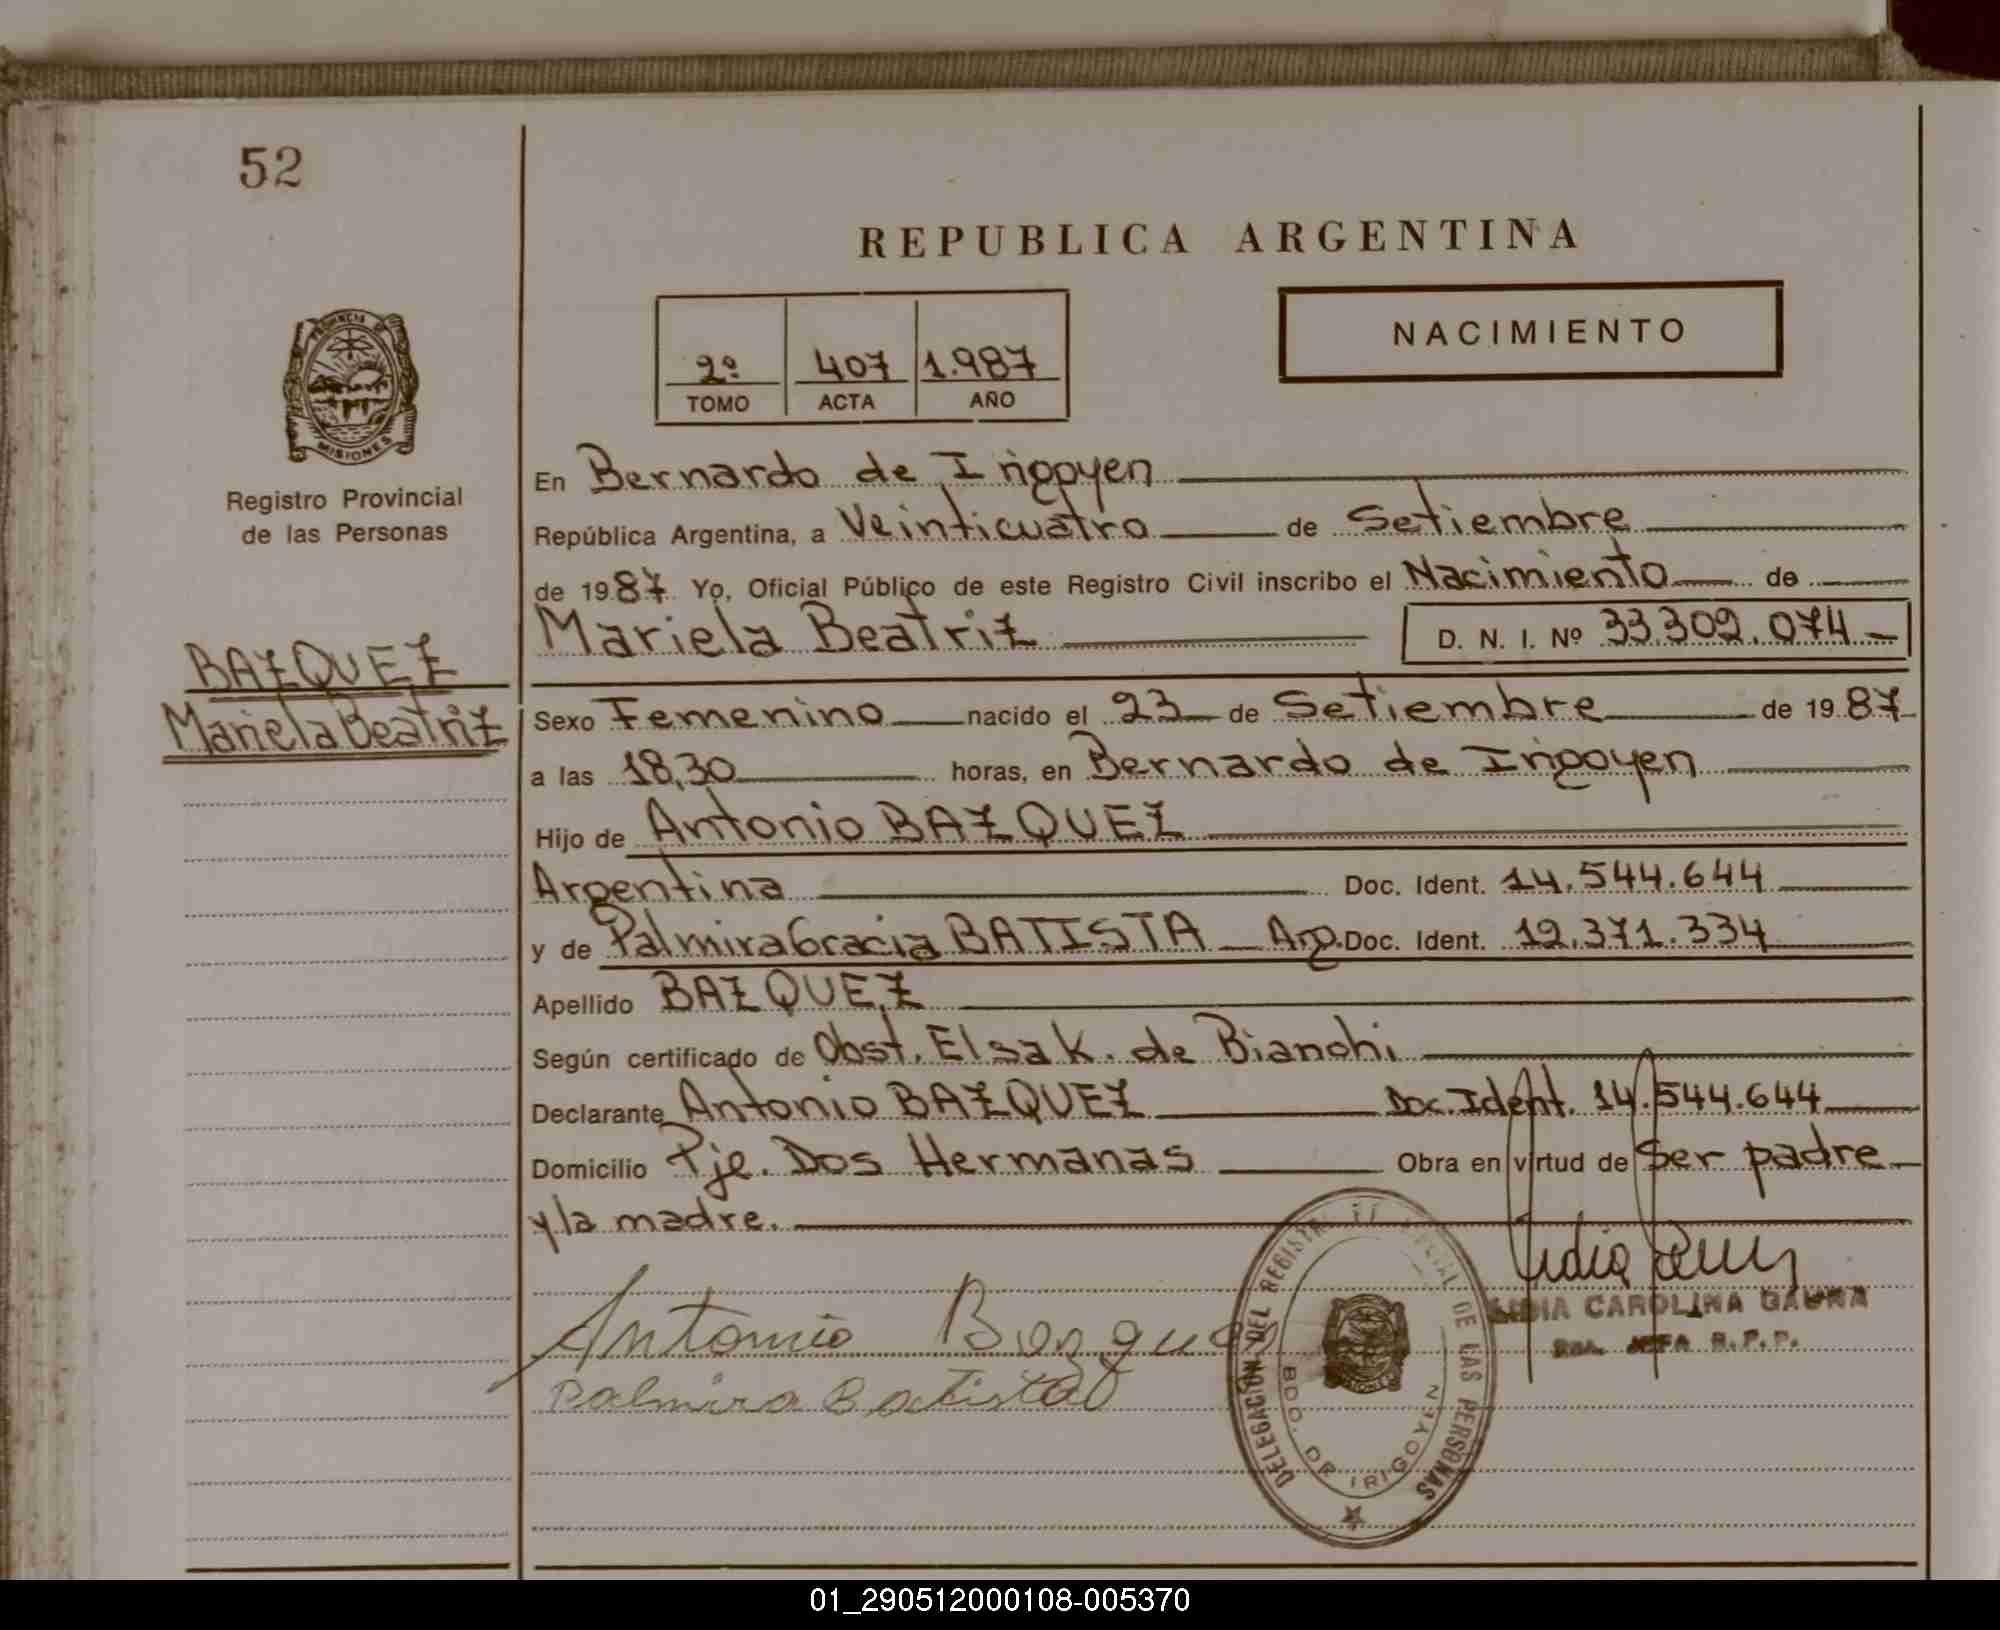 52
REPUBLICA ARGENTINA
NACIMIENTO
2º 407 1.987
TOMO ACTA AÑO
PROVINCIA DE
MISIONES
Registro Provincial
de las Personas
BAZQUEZ
Mariela Beatriz
En Bernardo de Irigoyen
República Argentina, a Veinticuatro de Setiembre
de 1987 Yo, Oficial Público de este Registro Civil inscribo el Nacimiento de
Mariela Beatriz D. N. I. Nº 33.302.074
Sexo Femenino nacido el 23 de Setiembre de 1987
a las 18,30 horas, en Bernardo de Irigoyen
Hijo de Antonio BAZQUEZ
Argentina Doc. Ident. 14.544.644
y de Palmira Gracia BATISTA Arg. Doc. Ident. 12.371.334
Apellido BAZQUEZ
Según certificado de Obst. Elsa K. de Bianchi
Declarante Antonio BAZQUEZ Doc. Ident. 14.544.644
Domicilio Pje. Dos Hermanas Obra en virtud de Ser padre
y la madre.
Antonio Bazques
Palmira Batista
DELEGACION DEL REGISTRO DE LAS PERSONAS
BDO. DE IRIGOYEN
LIDIA CAROLINA GAUNA
JEFA R.P.P.
01_290512000108-005370